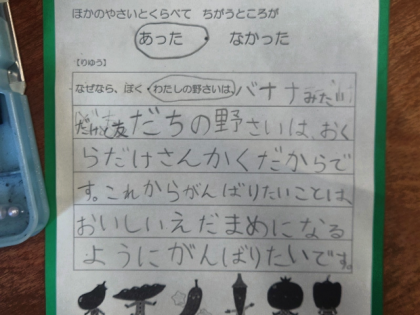 ほかのやさいとくらべて ちがうところが
あった ・ なかった
【りゆう】
なぜなら、ぼく・わたしの野さいは、バナナみたい
だけど友だちの野さいは、おく
らだけさんかくだからで
す。これからがんばりたいことは、
おいしいえだまめになる
ようにがんばりたいです。